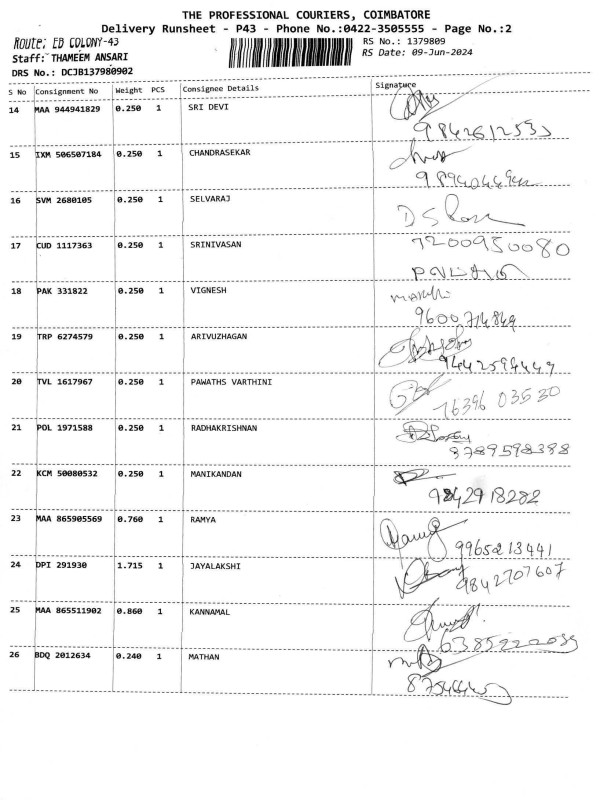 THE PROFESSIONAL COURIERS, COIMBATORE
Delivery Runsheet - P43 - Phone No.:0422-3505555 - Page No.:2
Route: EB COLONY-43
RS No.: 1379809
Staff: THAMEEM ANSARI
RS Date: 09-Jun-2024
DRS No.: DCJB137980902
S No Consignment No Weight PCS Consignee Details Signature
14 MAA 944941829 0.250 1 SRI DEVI
15 IXM 506507184 0.250 1 CHANDRASEKAR
16 SVM 2680105 0.250 1 SELVARAJ
17 CUD 1117363 0.250 1 SRINIVASAN 7200950080
18 PAK 331822 0.250 1 VIGNESH
9600714849
19 TRP 6274579 0.250 1 ARIVUZHAGAN
9442594449
20 TVL 1617967 0.250 1 PAWATHS VARTHINI
76396 03530
21 POL 1971588 0.250 1 RADHAKRISHNAN
22 KCM 50080532 0.250 1 MANIKANDAN
9842918282
23 MAA 865905569 0.760 1 RAMYA
9965213441
24 DPI 291930 1.715 1 JAYALAKSHI
9842707607
25 MAA 865511902 0.860 1 KANNAMAL
26 BDQ 2012634 0.240 1 MATHAN